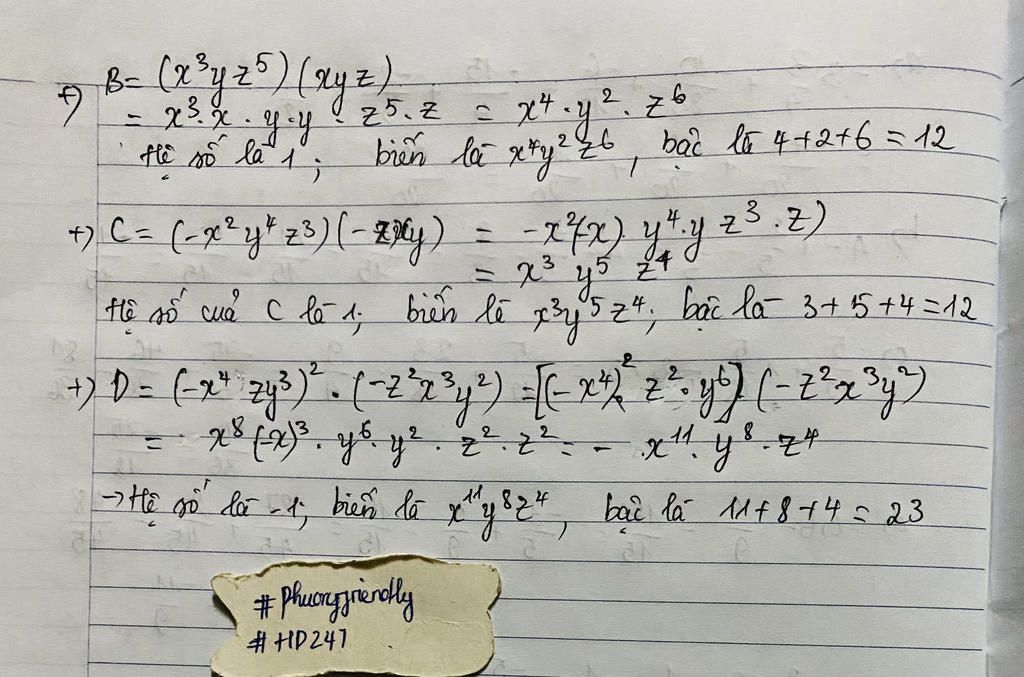 +) B = (x³yz⁵)(xyz)
= x³.x . y.y . z⁵.z = x⁴ . y² . z⁶
Hệ số là 1; biến là x⁴y²z⁶, bậc là 4+2+6 = 12
+) C = (-x²y⁴z³)(-zxy) = -x²(-x) y⁴.y z³.z)
= x³ y⁵ z⁴
Hệ số của C là 1; biến là x³y⁵z⁴; bậc là 3+5+4=12
+) D = (-x⁴ zy³)² . (-z²x³y²) = [(-x⁴)². z² . y⁶] . (-z²x³y²)
= x⁸ (-x)³ . y⁶ . y² . z² . z² = - x¹¹ . y⁸ . z⁴
→ Hệ số là -1; biến là x¹¹y⁸z⁴, bậc là 11+8+4 = 23
#phuongfriendly
#HD247